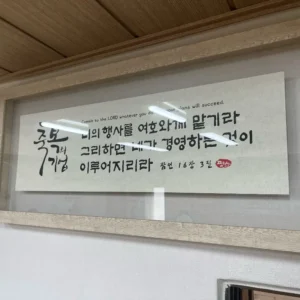 축복의
기업
Commit to the LORD whatever you do, and your plans will succeed.
너의 행사를 여호와께 맡기라
그리하면 네가 경영하는 것이
이루어지리라 잠언 16장 3절